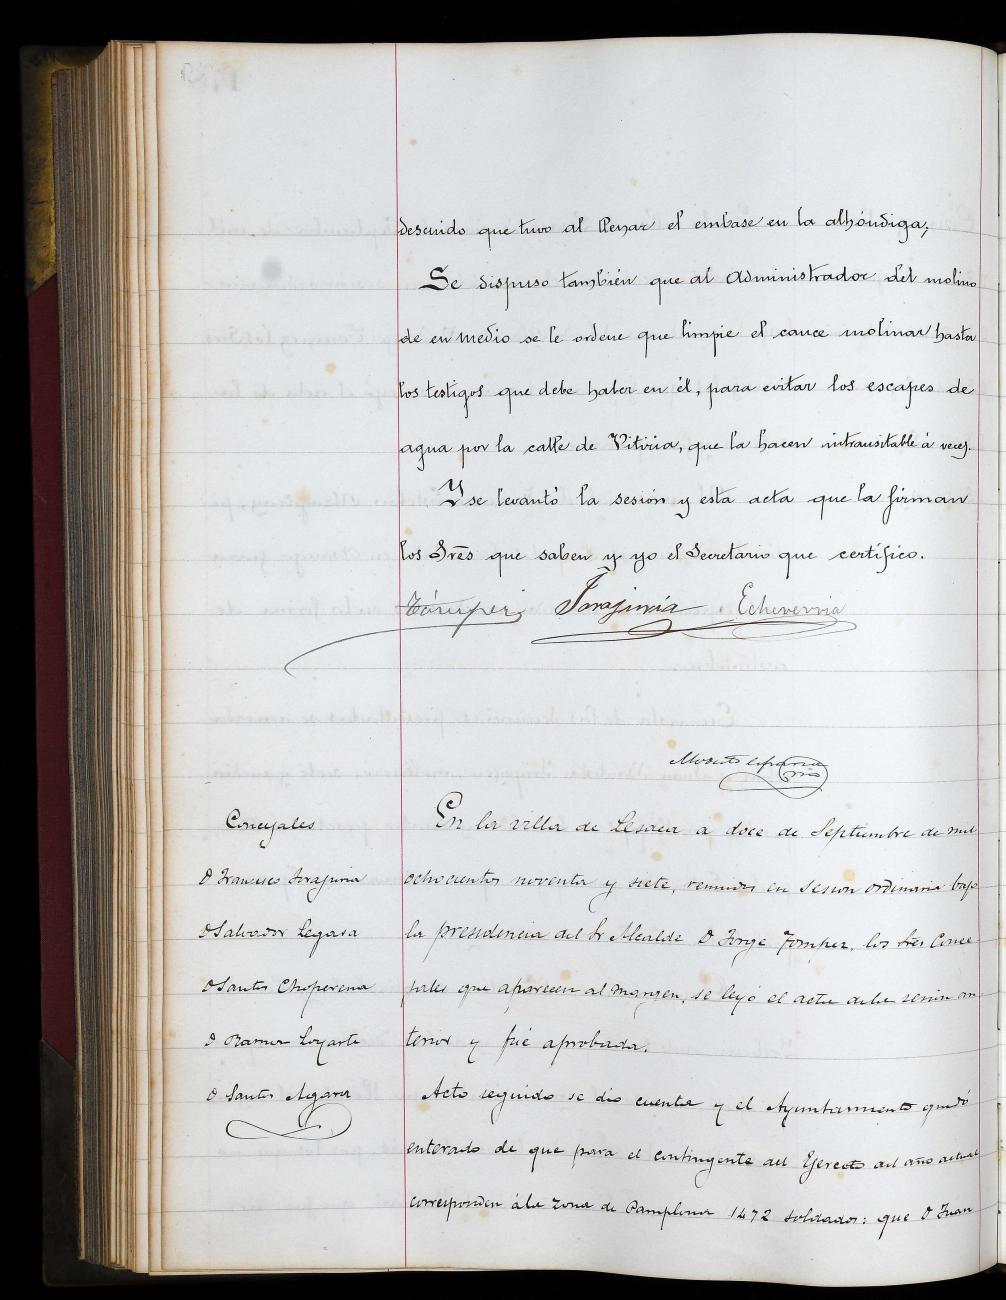 descuido que tuvo al Pesar el embase en la alhóndiga;
Se dispuso también que al Administrador del molino
de en medio se le ordene que limpie el cauce molinar hasta
los testigos que debe haber en él, para evitar los escapes de
agua por la calle de Vitiria, que la hacen intransitable á veces.
Y se levantó la sesión y esta acta que la firman
los Sres que saben y yo el Secretario que certifico.
Echeverria
Concejales
D Francisco
D Salvador Legasa
D Santos Choperena
D Ramon Loyarte
D Santos
En la villa de Lesaca a doce de Septiembre de mil
ochocientos noventa y siete, reunidos en sesion ordinaria bajo
la presidencia del Sr Alcalde D Jorge Tompes, los Sres Conce
jales que aparecen al margen, se leyó el acta de la sesion an
terior y fué aprobada.
Acto seguido se dio cuenta y el Ayuntamiento quedó
enterado de que para el contingente del Ejercito del año actual
corresponden á la zona de Pamplona 1472 soldados: que D Juan